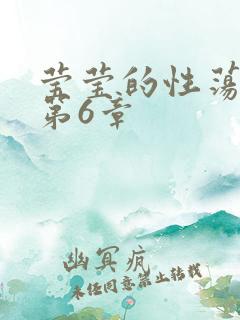 莹莹的性荡
第6章
幽冥疯
未经同意禁止转载